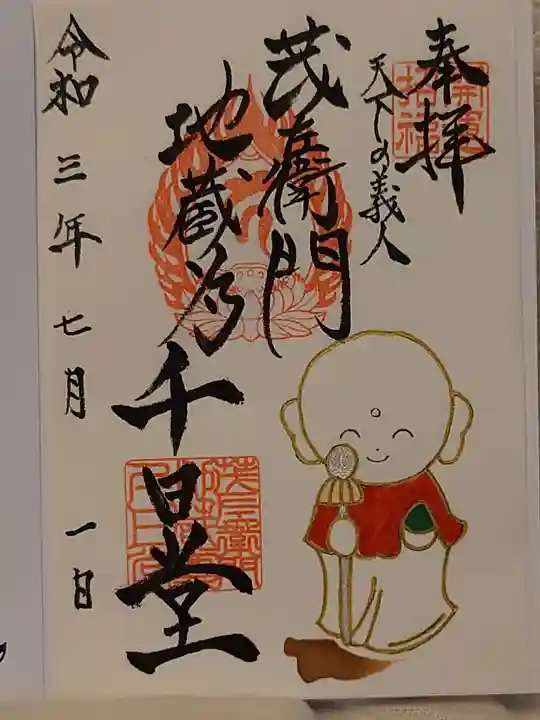 奉拝
開運
招福
天下の義人
茂左衛門
地蔵尊
千日堂
令和三年七月一日